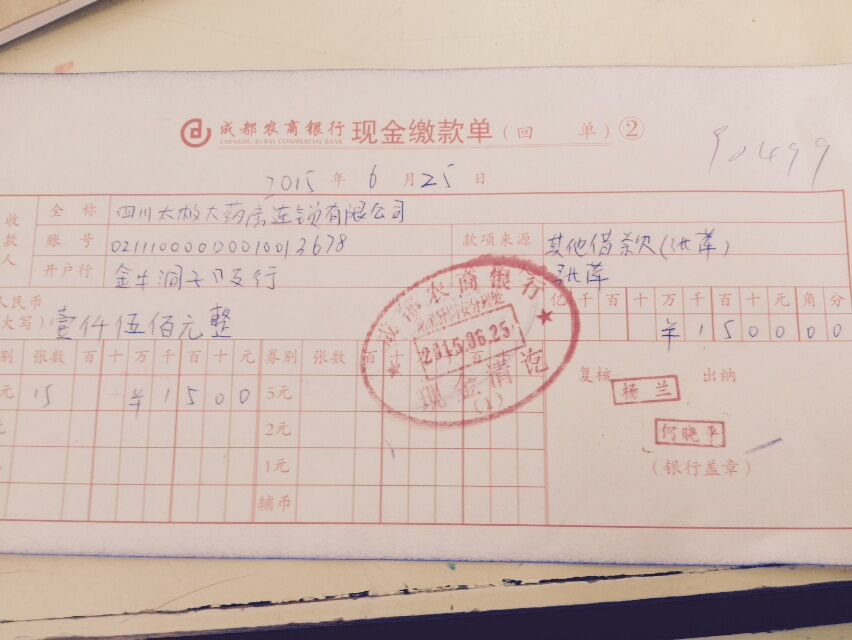 成都农商银行 现金缴款单（回 单）②
CHENGDU RURAL COMMERCIAL BANK
90499
2015 年 6 月 25 日
收款人
全 称 四川太极大药房连锁有限公司
账 号 02111000000010013678 款项来源 其他借款(张萍)
开户行 金牛洞子口支行 张萍
人民币 亿 千 百 十 万 千 百 十 元 角 分
大写） 壹仟伍佰元整 ¥ 1 5 0 0 0 0
别 张数 百 十 万 千 百 十 元 券别 张数 百 十 百
元 15 ¥ 1 5 0 0 5元
元 2元
1元
辅币
成都农商银行
2015.06.25
现金清讫
(1)
复核 杨兰 出纳
何晓平
（银行盖章）